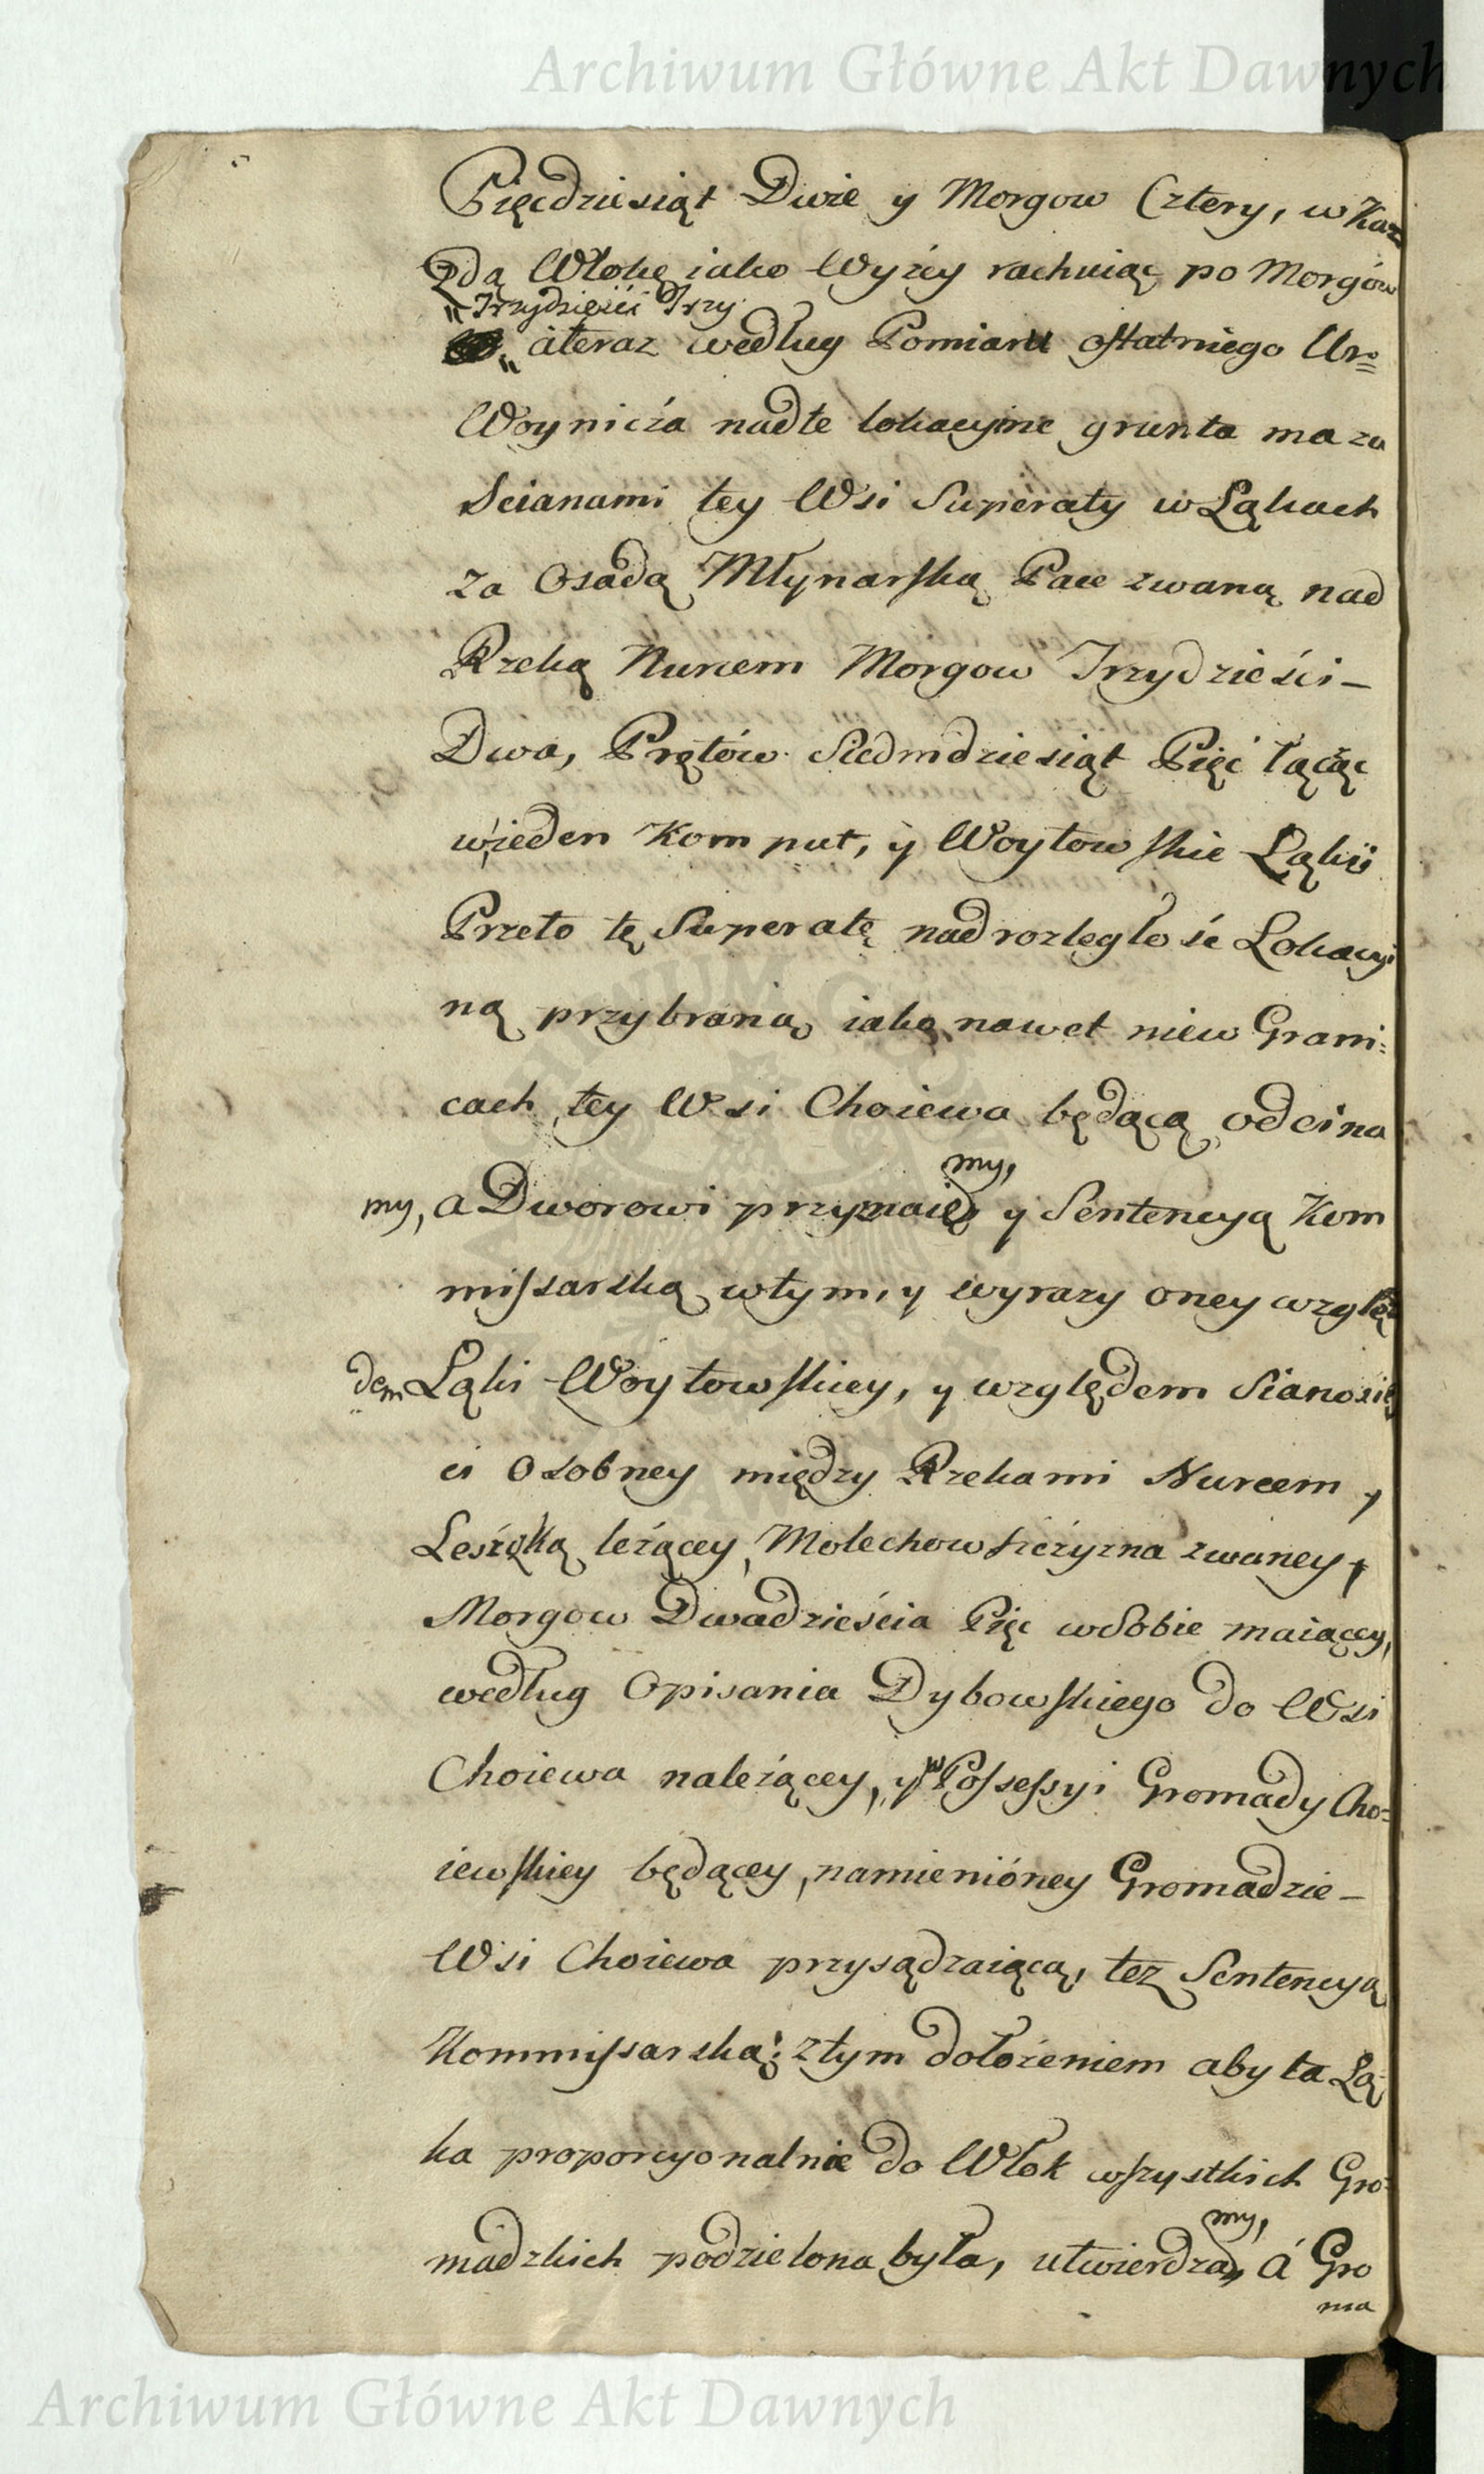 Archiwum Główne Akt Dawnych
Pięcdziesiąt Dwie y Morgow Cztery, w Kaz
żdą Włokę iako Wyżey rachuiąc po Morgów
Trzydzieści Trzy
ateraz według Pomiaru ostatniego Ur=
Woynicża nad te lokacyine grunta ma za
Scianami tey Wsi Superaty w Łąkach
za Osadą Młynarską Pace zwaną nad
Rzeką Nurcem Morgow Trzydzieści –
Dwa, Prętów Siedmdziesiąt Pięć łącząc
wieden Komput, y Woytowskie Łąkii
Przeto tę Superatę nad rozległość Lokacyi
ną przybraną, iako nawet niew Grani=
cach tey Wsi Choiewa będącą odcina
my,
my, a Dworowi przyznaie y Sentencyą Kom
missarską wtym, y wyrazy oney wzglę
dem Łąki Woytowskiey, y względem Sianożię
ci Osobney między Rzekami Nurcem, y
Leśżką leżącey, Molechowszczyzna zwaney,
Morgow Dwadzieścia Pięc wSobie maiącey,
według Opisania Dybowskiego do Wsi
Choiewa należącey, y w Possessyi Gromady Cho=
iewskiey będącey, namienióney Gromadzie –
Wsi Choiewa przysądzaiącą, tez Sentencyą
Kommissarską: ztym dołożeniem aby ta Łą=
ka proporcyonalnie do Włok wszystkich Gro=
my,
madzkich podzielona była, utwierdza, á Gro
ma
Archiwum Główne Akt Dawnych